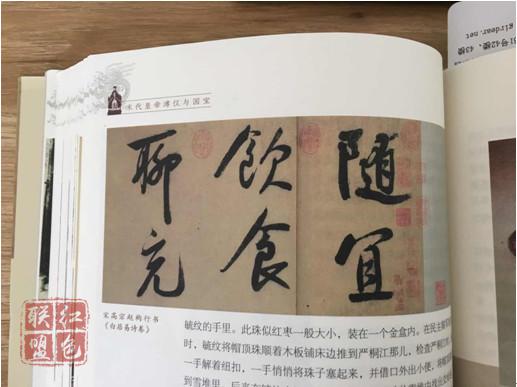 末代皇帝溥仪与国宝
随宜
飲食
聊充
宋高宗赵构行书
《白居易诗卷》
毓纹的手里。此珠似红枣一般大小，装在一个金盒内。在民主
时，毓纹将帽顶珠顺着木板铺床边推到严桐江那儿，检查严桐江
一手解着纽扣，一手悄悄将珠子塞起来，并借口外出小便，将帽
51号42楼、43楼
girdear.net
红色
联盟